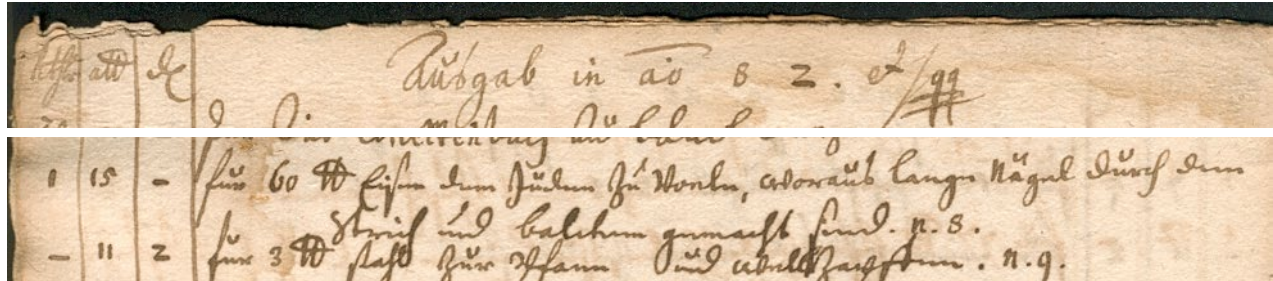 rthlr alb d Ausgab in aō 82. et /99
1 15 - für 60 ℔ Eisen dem Juden Zu Vorln, woraus lange Nägel durch dem
Strich und balcken gemacht sind. n. 8.
- 11 2 für 3 ℔ stahl Zur Pfann und wellZapffen. n. 9.